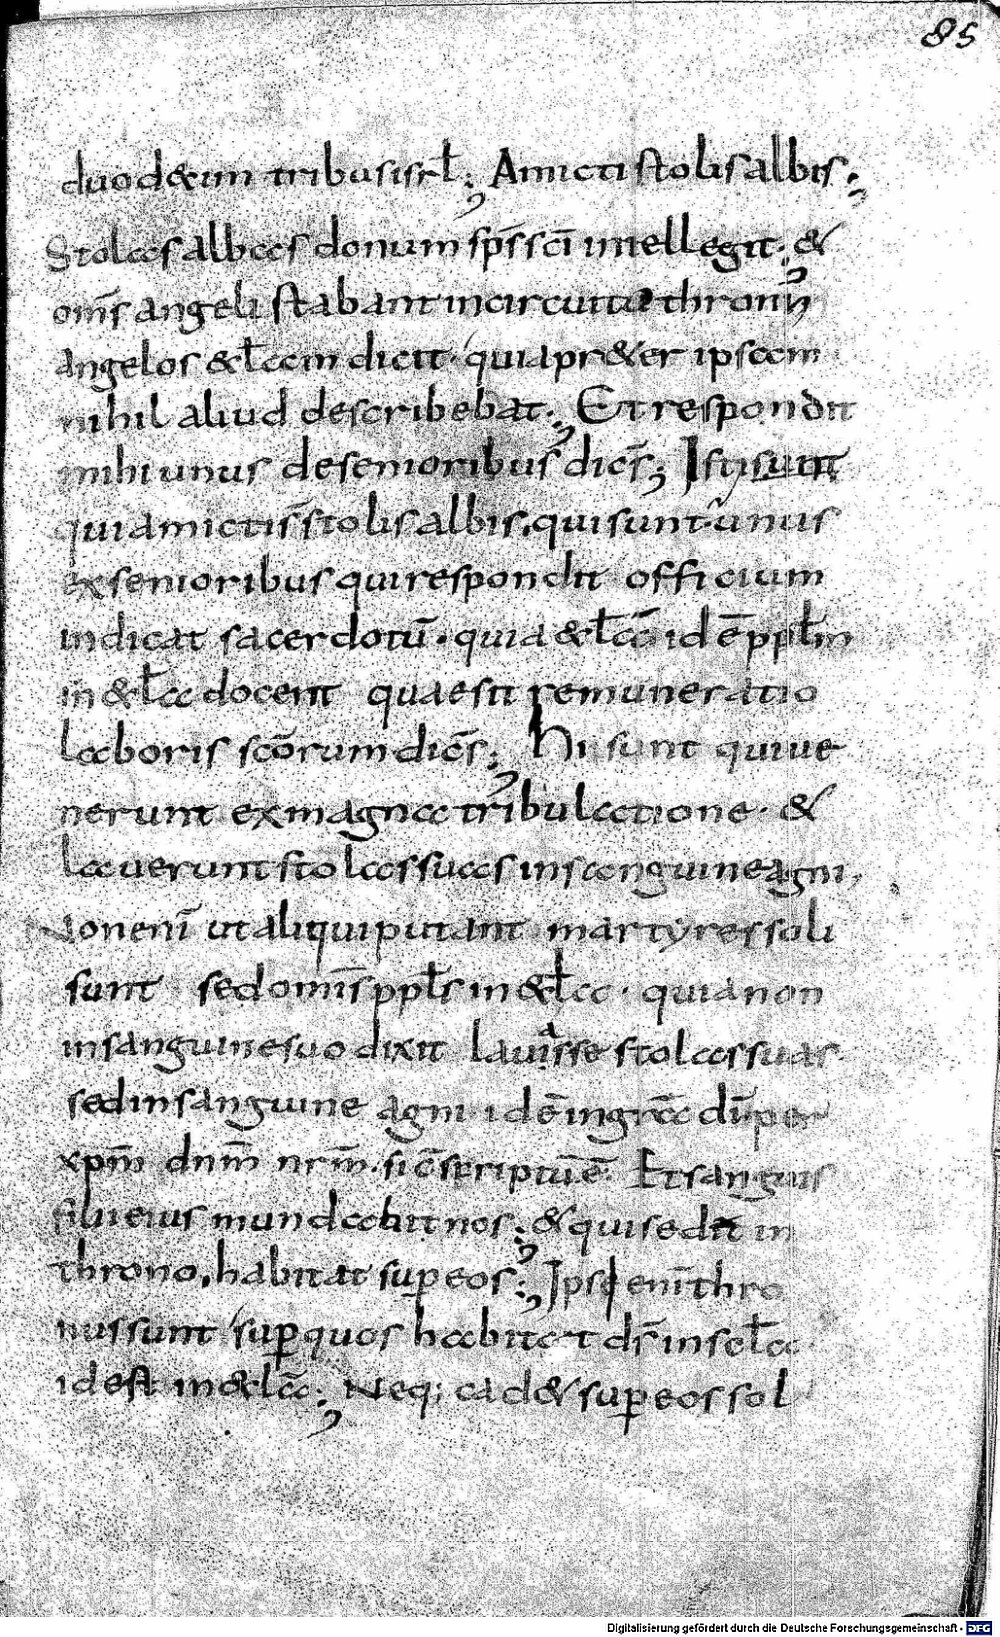 85
duod&im tribus isrl̄; Amicti stolis albis;
Stolas albas donum sp̄s sc̄i intellegit; &
om̄s angeli stabant in circuitu throni;
angelos &l̄am dicit· quia pr&er ipsam
nihil aliud describebat; Et respondit
mihi unus de senioribus dic̄s; Isti sunt
qui amicti s̄ stolis albis, qui sunt· unus
ex senioribus qui respondit officium
indicat sacerdotū· quia &l̄cā id ē ppl̄m
in &l̄ca docent quae sit remuneratio
laboris sc̄orum dic̄s; Hi sunt qui ue
nerunt ex magna tribulatione· &
lauerunt stolas suas in sanguine agni,
Non enī ut aliqui putant martyres soli
sunt sed om̄is ppl̄s in &l̄ca· quia non
in sanguine suo dixit lauasse stolas suas·
sed in sanguine agni id ē in gr̄a dī per
xpm̄ dnm̄ nrm̄· sic̄ scriptū ē· Et sanguis
filii eius mundabit nos; & qui sedit in
throno, habitat super eos; Ipsi enī thro
nus sunt super quos habitat dr̄ in sel̄ca
id est in &l̄cā; Neq; cad& super eos sol
Digitalisierung gefördert durch die Deutsche Forschungsgemeinschaft - DFG